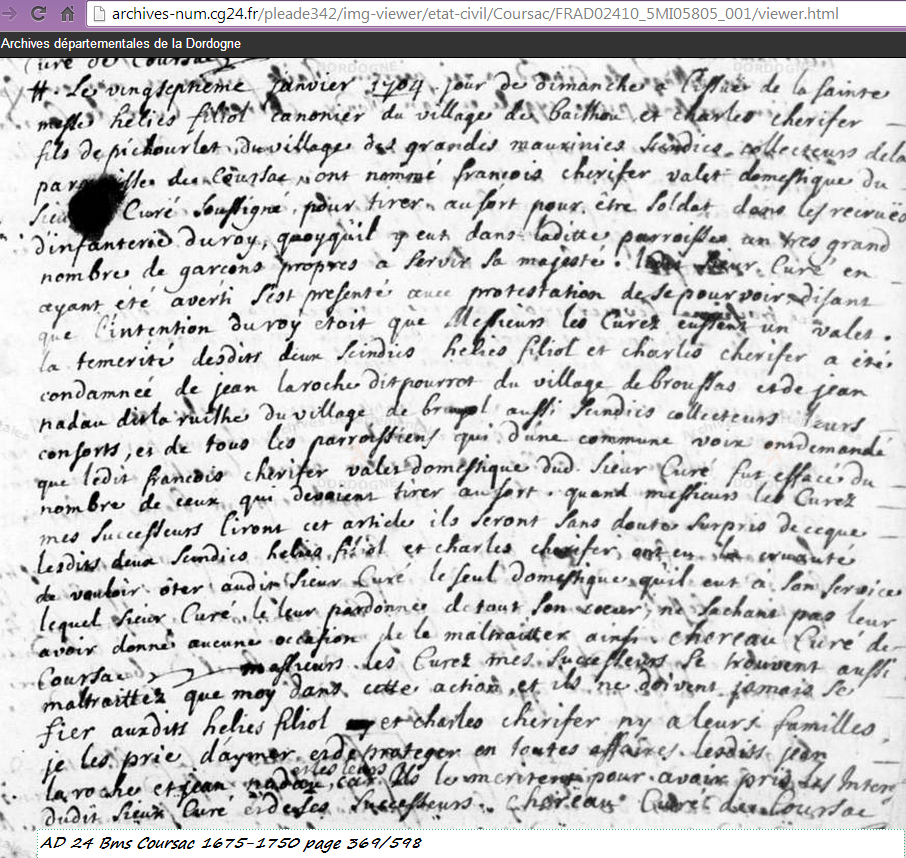 archives-num.cg24.fr/pleade342/img-viewer/etat-civil/Coursac/FRAD02410_5MI05805_001/viewer.html
Archives départementales de la Dordogne
Curé de Coursac
#. Le vingseptieme janvier 1704 jour de dimanche a l'issüe de la sainte
messe helies filiol canonier du village de baithou et charles cherifer
fils de pichourlet, du village des grandes mauxinies scindics collecteurs de la
parroisse de Coursac, ont nommé francois cherifer valet domestique du
Sieur Curé soussigne, pour tirer au sort pour etre soldat dans les recrües
d'infanterie du roy, quoyqu'il y eut dans laditte parroisse un tres grand
nombre de garcons propres a servir sa majesté. ledit sieur Curé en
ayant été averti s'est presenté avec protestation de se pourvoir disant
que l'intention du roy etoit que Messieurs les Curez eussent un valet.
la temerité desdits deux scindics helies filiol et charles cherifer a été
condamnéé de jean laroche dit pourrot du village de broussas et de jean
nadau dit la ruithe du village de aussi scindics collecteurs leurs
consorts, et de tous les parroissiens qui d'une commune voix ont demandé
que ledit francois cherifer valet domestique dud. Sieur Curé fut effacé du
nombre de ceux qui devoient tirer au sort. quand messieurs les Curez
mes successeurs liront cet article ils seront sans doute surpris de ceque
lesdits deux scindics helies filiol et charles cherifer, ont eu la cruauté
de vouloir oter audit Sieur Curé le seul domestique qu'il eut a son service
lequel sieur Curé le leur pardonne de tout son coeur, ne sachant pas leur
avoir donné aucune occasion de le maltraitter ainsi. chereau Curé de
Coursac massieurs les Curez mes successeurs se trouvent aussi
maltraittez que moy dans cette action, et ils ne doivent jamais se
fier auxdits helies filiol et charles cherifer ny a leurs familles,
je les prie d'aymer et de proteger en toutes affaires lesdits jean
la roche et jean nadau, et les leurs car ils le meritent pour avoir pris les Inter
dudit Sieur Curé et de ses successeurs. chereau Curé de Coursac
AD 24 Bms Coursac 1675-1750 page 369/598